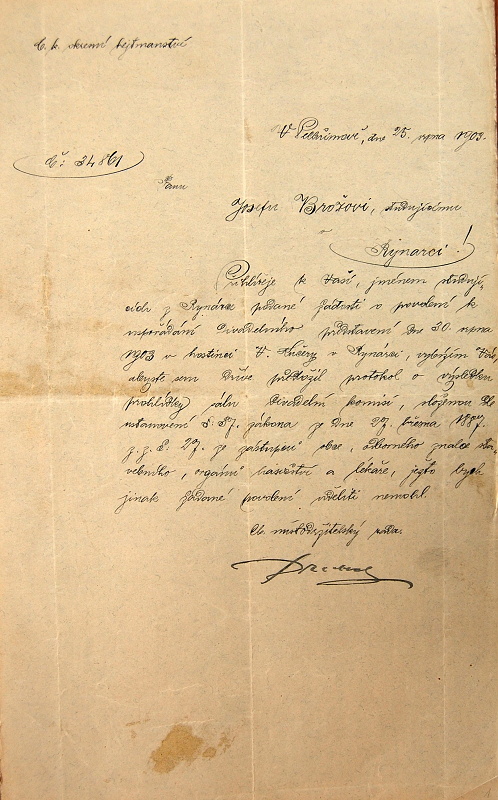 C. k. okresní hejtmanství
V Pelhřimově, dne 25. srpna 1903.
Č: 34861
Panu
Josefu Brožovi, studujícímu
v
Rynarci!
Přihlížeje k Vaší, jménem studují-
cích z Rynárce podané žádosti o povolení k
uspořádání divadelního představení dne 30. srpna
1903 v hostinci V. Kučery v Rynárci, vybízím Vás,
abyste sem dříve předložil protokol o výsledku
prohlídky sálu divadelní komisí, složenou dle
ustanovení §: 87. zákona ze dne 27. března 1887.
z. z. č. 27. ze zástupců obce, odborného znalce sta-
vebního, orgánů hasičstva a lékaře, ježto bych
jinak žádané povolení uděliti nemohl.
Ck. místodržitelský rada: